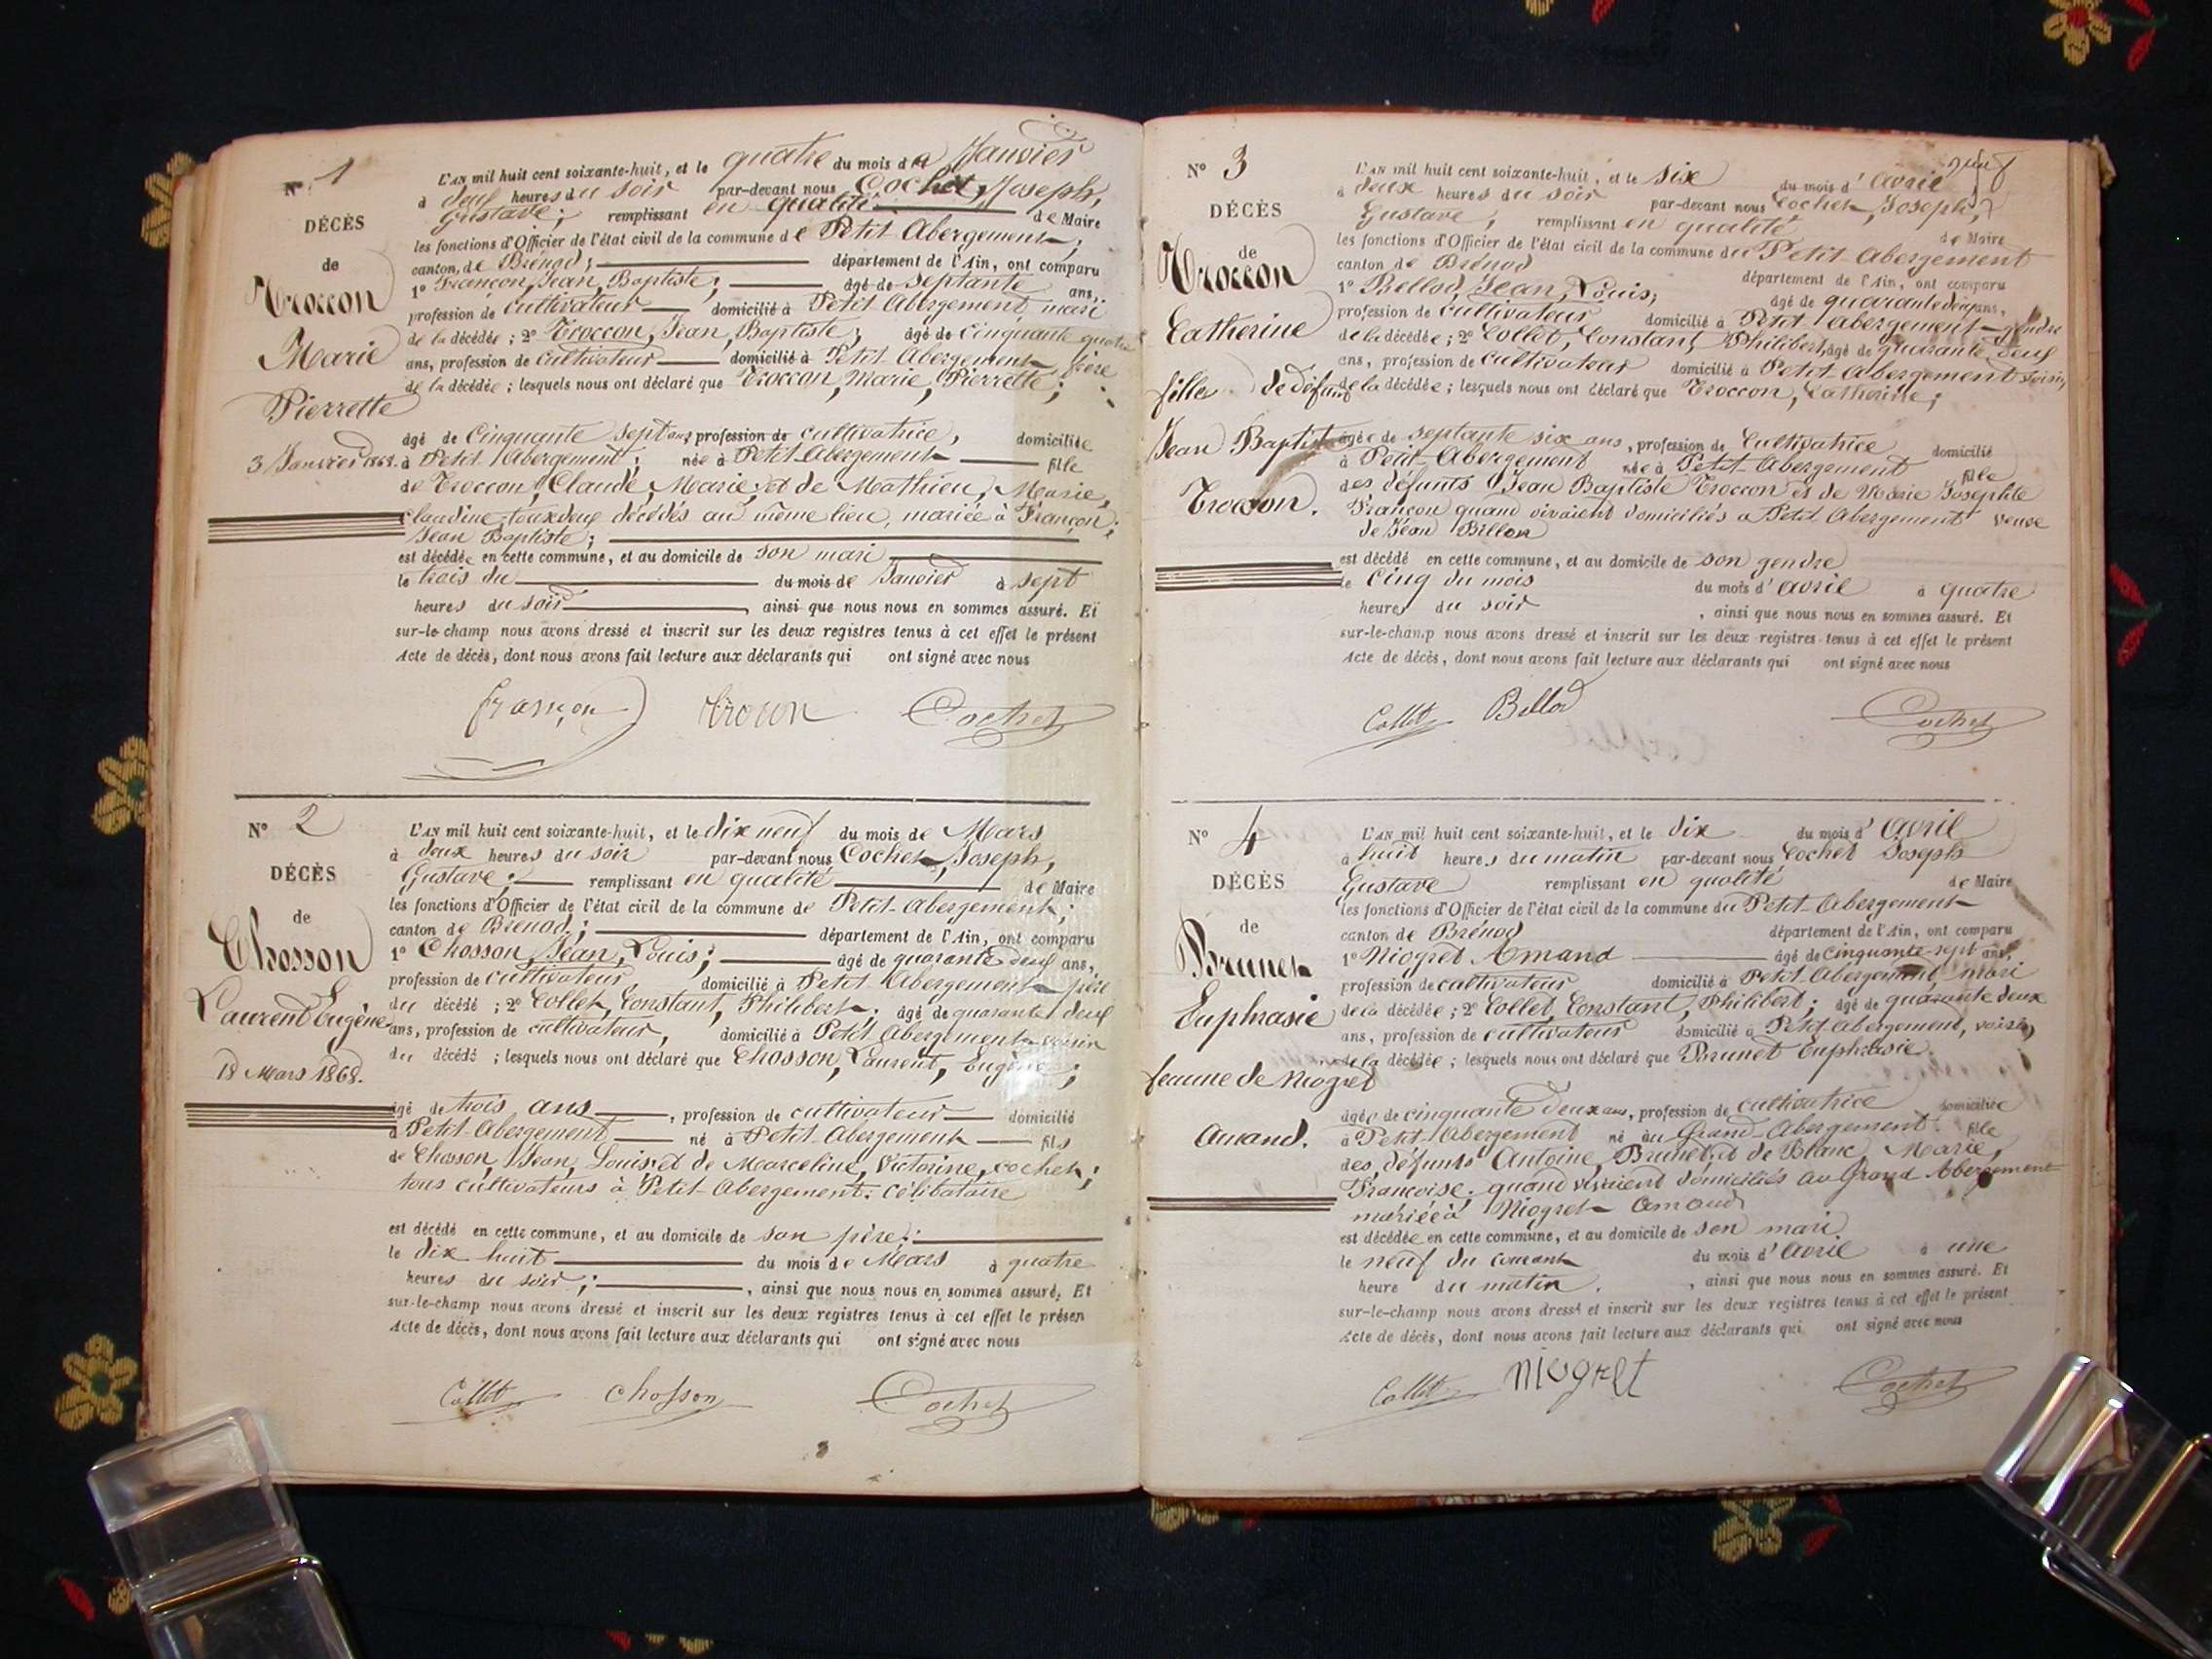 N° 1
DÉCÈS
de
Troccon
Marie
Pierrette
3 Janvier 1868.
L'AN mil huit cent soixante-huit, et le quatre du mois de Janvier
à deux heures du soir par-devant nous Cochet, Joseph,
Gustave; remplissant en qualité de Maire
les fonctions d'Officier de l'état civil de la commune de Petit-Abergement;
canton de Brénod; département de l'Ain, ont comparu
1° Françon, Jean, Baptiste; âgé de septante ans,
profession de cultivateur domicilié à Petit Abergement, mari
de la décédée; 2° Troccon, Jean, Baptiste; âgé de cinquante quatre
ans, profession de cultivateur domicilié à Petit Abergement, frère
de la décédée; lesquels nous ont déclaré que Troccon, Marie, Pierrette;
âgé de cinquante sept ans profession de cultivatrice, domiciliée
à Petit-Abergement; née à Petit-Abergement fille
de Troccon, Claude, Marie, et de Mathieu, Marie,
claudine, tous deux décédés au même lieu, mariée à Françon,
Jean Baptiste;
est décédée en cette commune, et au domicile de son mari
le trois du du mois de Janvier à sept
heures du soir, ainsi que nous nous en sommes assuré. Et
sur-le-champ nous avons dressé et inscrit sur les deux registres tenus à cet effet le présent
Acte de décès, dont nous avons fait lecture aux déclarants qui ont signé avec nous
françon Trocon Cochet
N° 2
DÉCÈS
de
Chosson
Laurent Eugène
18 Mars 1868.
L'AN mil huit cent soixante-huit, et le dix neuf du mois de Mars
à deux heures du soir par-devant nous Cochet, Joseph,
Gustave; remplissant en qualité de Maire
les fonctions d'Officier de l'état civil de la commune de Petit-Abergement;
canton de Brénod; département de l'Ain, ont comparu
1° Chosson, Jean, Louis; âgé de quarante deux ans,
profession de cultivateur, domicilié à Petit-Abergement père
du décédé; 2° Collet, Constant, Philibert; âgé de quarante deux
ans, profession de cultivateur, domicilié à Petit Abergement voisin
du décédé; lesquels nous ont déclaré que Chosson, Laurent, Eugène;
âgé de trois ans, profession de cultivateur domicilié
à Petit-Abergement né à Petit-Abergement fils
de Chosson, Jean, Louis et de Marceline, Victorine, cochet;
tous cultivateurs à Petit-Abergement; célibataire
est décédé en cette commune, et au domicile de son père;
le dix huit du mois de Mars à quatre
heures du soir;, ainsi que nous nous en sommes assuré. Et
sur-le-champ nous avons dressé et inscrit sur les deux registres tenus à cet effet le présen
Acte de décès, dont nous avons fait lecture aux déclarants qui ont signé avec nous
Collet chosson Cochet
N° 3
DÉCÈS
de
Troccon
Catherine
fille de défunt
Jean Baptiste
Troccon.
L'AN mil huit cent soixante-huit, et le six du mois d'avril
à deux heures du soir par-devant nous Cochet, Joseph,
Gustave, remplissant en qualité de Maire
les fonctions d'Officier de l'état civil de la commune du Petit Abergement
canton de Brénod département de l'Ain, ont comparu
1° Bellod, Jean, Louis, âgé de quarante cinq ans,
profession de cultivateur domicilié à Petit Abergement gendre
de la décédée; 2° Collet, Constant, Philibert, âgé de quarante deux
ans, profession de cultivateur domicilié à Petit Abergement voisin
de la décédée; lesquels nous ont déclaré que Troccon, Catherine;
âgée de septante six ans, profession de Cultivatrice domicilié
à Petit-Abergement née à Petit-Abergement fille
des défunts Jean Baptiste Troccon et de Marie Josephte
Françon quand vivaient domiciliés à Petit Abergement veuve
de Jean Billon
est décédé en cette commune, et au domicile de son gendre
le cinq du mois du mois d'avril à quatre
heures du soir, ainsi que nous nous en sommes assuré. Et
sur-le-champ nous avons dressé et inscrit sur les deux registres tenus à cet effet le présent
Acte de décès, dont nous avons fait lecture aux déclarants qui ont signé avec nous
Collet Bellod Cochet
N° 4
DÉCÈS
de
Brunet
Euphrasie
femme de Niogret
Amand.
L'AN mil huit cent soixante-huit, et le dix du mois d'avril
à huit heures du matin par-devant nous Cochet Joseph
Gustave remplissant en qualité de Maire
les fonctions d'Officier de l'état civil de la commune du Petit-Abergement
canton de Brénod département de l'Ain, ont comparu
1° Niogret Amand âgé de cinquante-sept ans,
profession de cultivateur domicilié à Petit Abergement, mari
de la décédée; 2° Collet, Constant, Philibert; âgé de quarante deux
ans, profession de cultivateur domicilié à Petit-Abergement, voisin
de la décédée; lesquels nous ont déclaré que Brunet Euphrasie.
âgée de cinquante deux ans, profession de cultivatrice domiciliée
à Petit-Abergement né au Grand-Abergement fille
des défunts Antoine Brunet, et de Blanc, Marie,
Françoise. quand vivaient domiciliés au Grand Abergement
mariée à Niogret Amand
est décédée en cette commune, et au domicile de son mari
le neuf du courant du mois d'avril à une
heure du matin., ainsi que nous nous en sommes assuré. Et
sur-le-champ nous avons dressé et inscrit sur les deux registres tenus à cet effet le présent
Acte de décès, dont nous avons fait lecture aux déclarants qui ont signé avec nous
Collet niogret Cochet